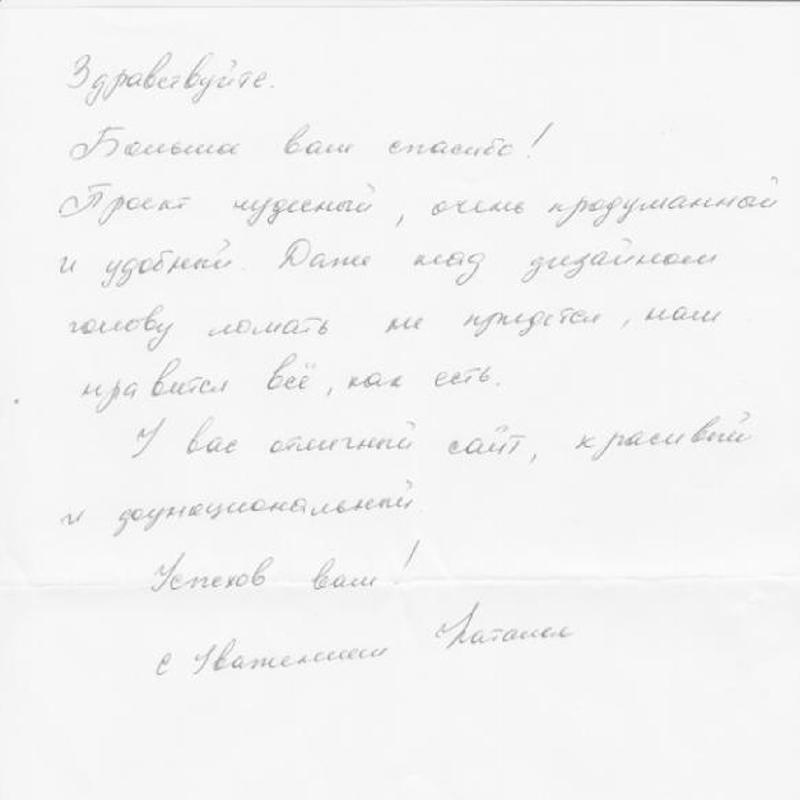 Здравствуйте.
Большое вам спасибо!
Проект чудесный, очень продуманный
и удобный. Даже над дизайном
голову ломать не придётся, нам
нравится всё, как есть.
У вас отличный сайт, красивый
и функциональный.
Успехов вам!
с Уважением Наталья